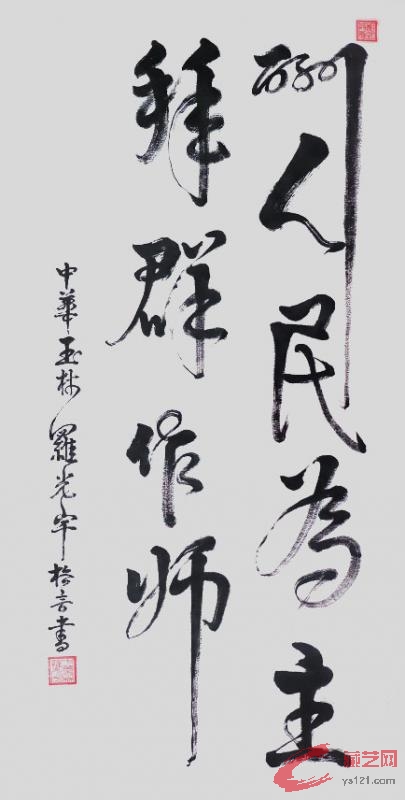 人民为主
拜群作师
中華玉林羅光宇格言書
艺网
ys121.com